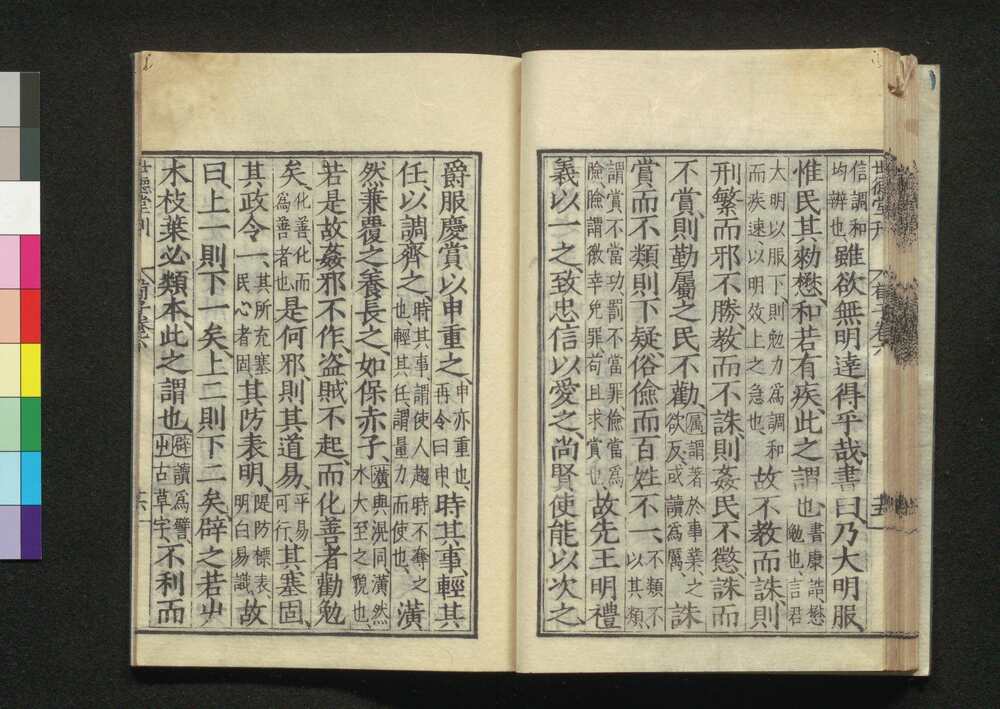 世德堂刊 荀子卷六 十五
信調和均辨也雖欲無明達得乎哉書曰乃大明服
惟民其勑懋、和若有疾、此之謂也書康誥、懋勉也、言君
大明以服下、則勉力爲調和而疾速、以明效上之急也、故不教而誅、則
刑繁而邪不勝教而不誅、則姦民不懲誅而
不賞、則勤屬之民不勸、屬謂著於事業之欲反或讀爲厲、誅
賞而不類則下疑、俗儉而百姓不一、不類不以其類、
謂賞不當功罰不當罪儉當爲險險謂徼幸免罪苟且求賞也、故先王明禮
義以一之、致忠信以愛之、尚賢使能以次之、
爵服慶賞以申重之、申亦重也、再令曰申、時其事、輕其
任、以調齊之、時其事謂使人趨時不奪之也、輕其任謂量力而使也、潢
然兼覆之養長之、如保赤子、潢與滉同、潢然水大至之貌也、
若是故姦邪不作、盜賊不起、而化善者勸勉
矣、化善、化而爲善者也是何邪、則其道易、平易可行、其塞固、
其政令一、其所充塞民心者固其防表明、隄防標表、明白易識、故
曰、上一則下一矣、上二則下二矣、辟之若屮
木枝葉必類本、此之謂也、辟讀爲譬、屮古草字、不利而
世德堂刊 荀子卷六 十六